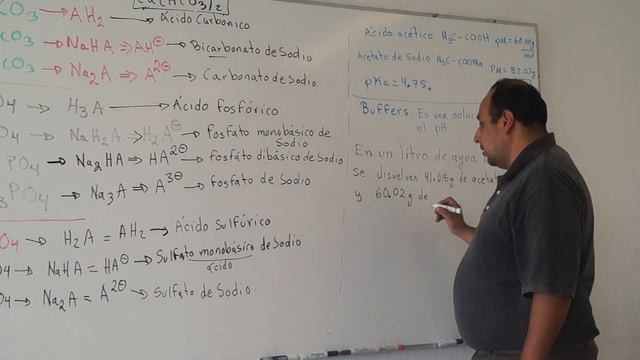 Ca(HCO3)2
CO3 → AH2 → Ácido Carbónico
CO3 → NaHA ⇒ AH⊖ → Bicarbonato de Sodio
CO3 → Na2A ⇒ A2⊖ → Carbonato de Sodio
O4 → H3A → Ácido fosfórico
O4 → NaH2A ⇒ H2A⊖ → Fosfato monobásico de Sodio
PO4 → Na2HA ⇒ HA2⊖ → fosfato dibásico de Sodio
3PO4 → Na3A ⇒ A3⊖ → fosfato de Sodio
O4 → H2A = AH2 → Ácido Sulfúrico
O4 → NaHA = HA⊖ → Sulfato monobásico de Sodio
ácido
O4 → Na2A = A2⊖ → Sulfato de Sodio.
Ácido acético H3C-COOH PM=60.02g/mol
Acetato de sodio H3C-COONa PM=82.03g
pKa = 4.75.
Buffers. Es una soluc
el pH
En un litro de agua
se disuelven 41.015g de aceta
y 60.02g de